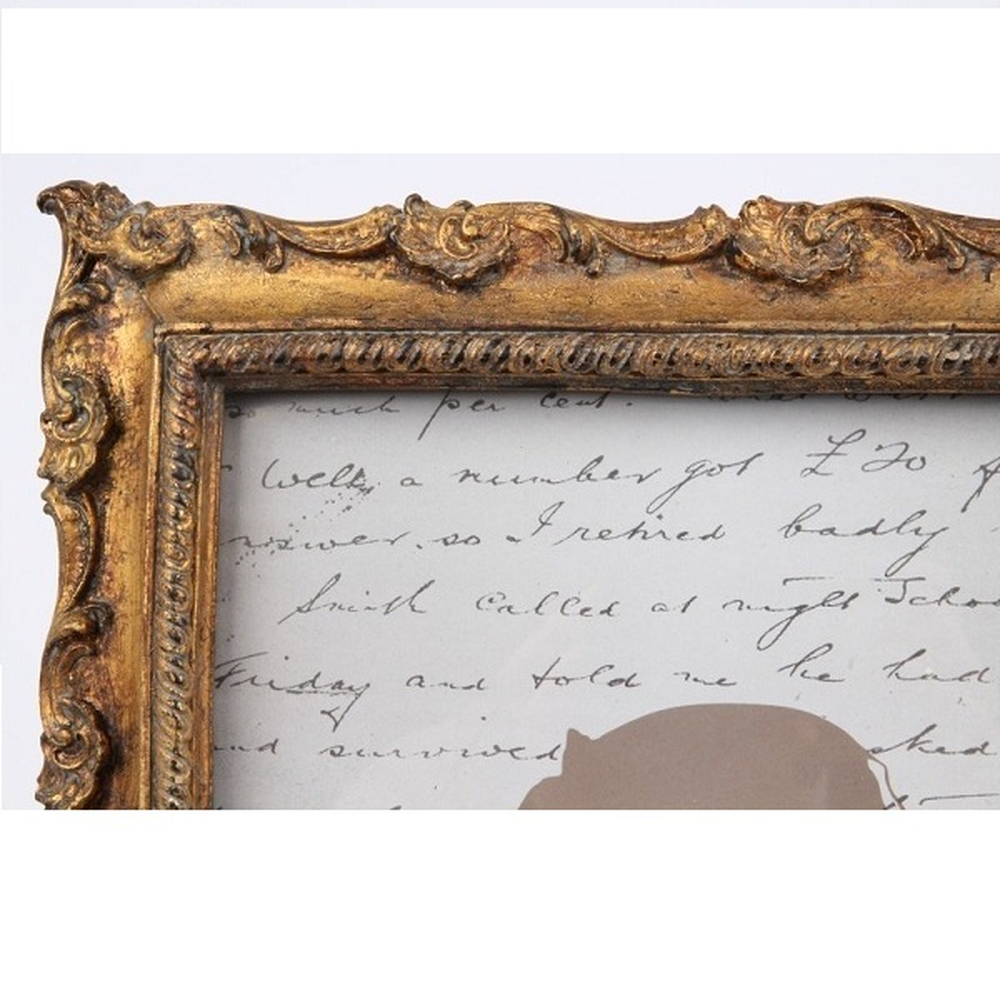 so much per cent.
Well, a number got £20
answer. so I retired badly
Smith called at night
Friday and told me he had
and survived